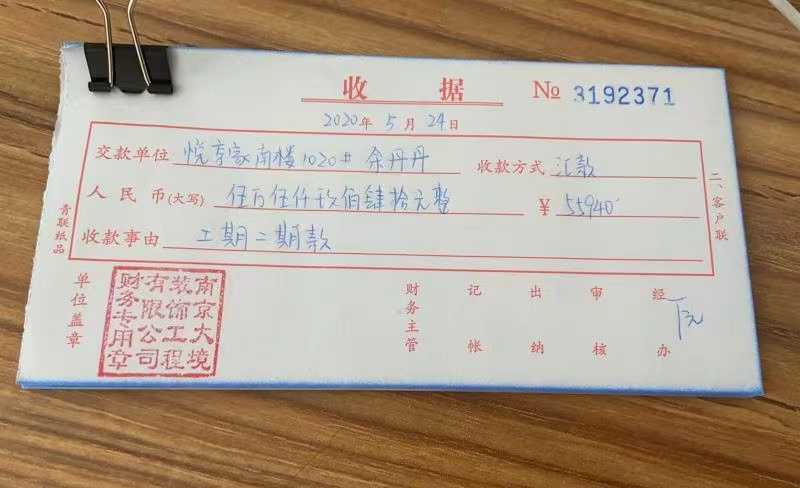 收 据 № 3192371
2020年 5月 24日
交款单位 悦享家南楼1020# 余丹丹 收款方式 汇款
人民币(大写) 伍万伍仟玖佰肆拾元整 ¥ 55940
收款事由 工期二期款
二、客户联
青联纸品
单位盖章
南京大境
装饰工程
有限公司
财务专用章
财务主管 记帐 出纳 审核 经办